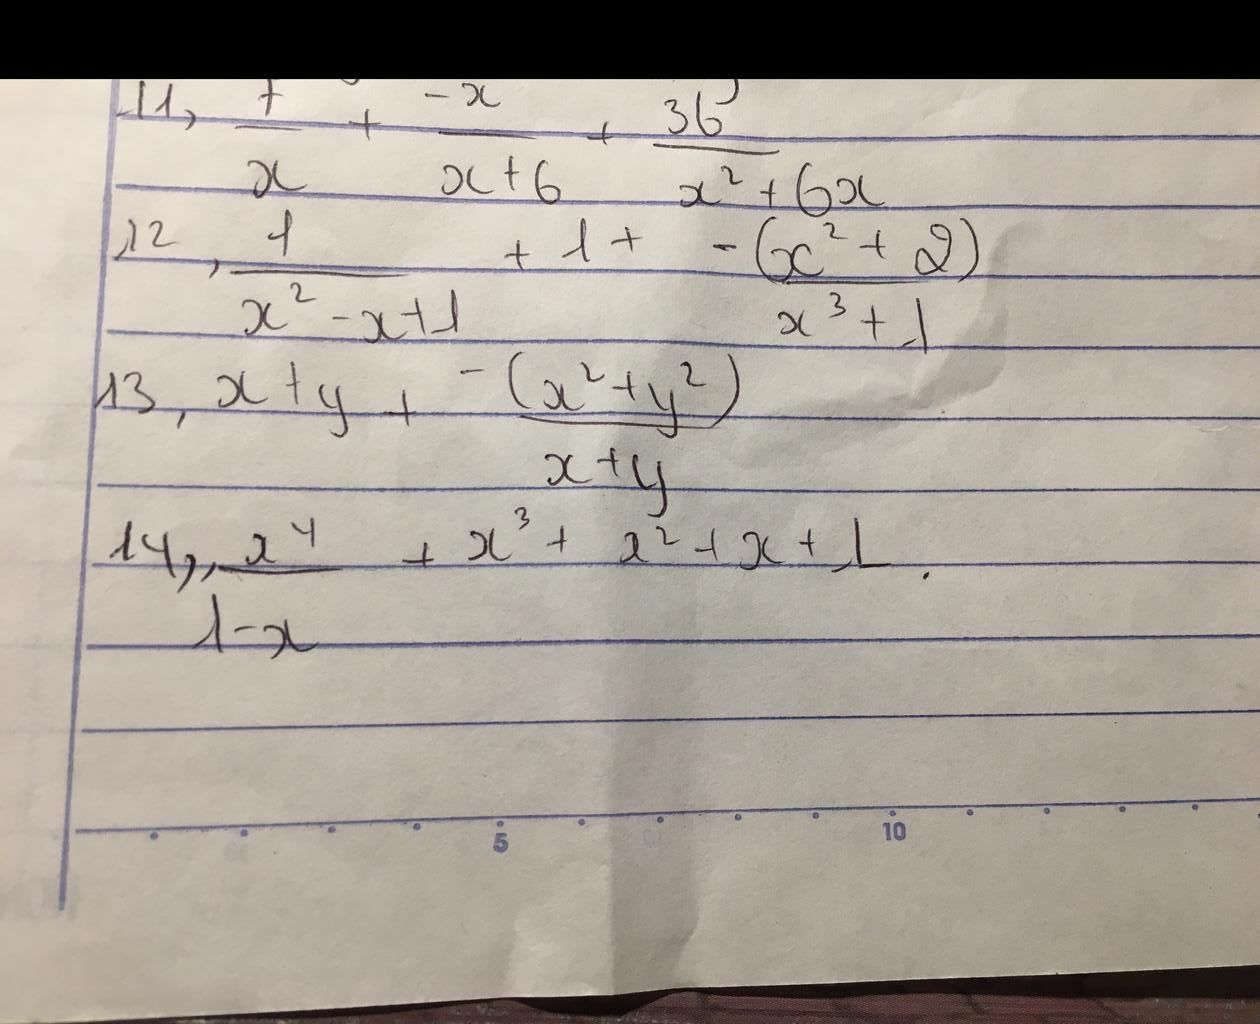 11, 7/x + -x/(x+6) + 36/(x²+6x)
12, 1/(x²-x+1) + 1 + -(x²+2)/(x³+1)
13, x+y + -(x²+y²)/(x+y)
14, x⁴/(1-x) + x³ + x² + x + 1.
5 10